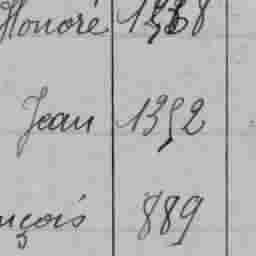 Honoré
Jean 1352
nçois 889